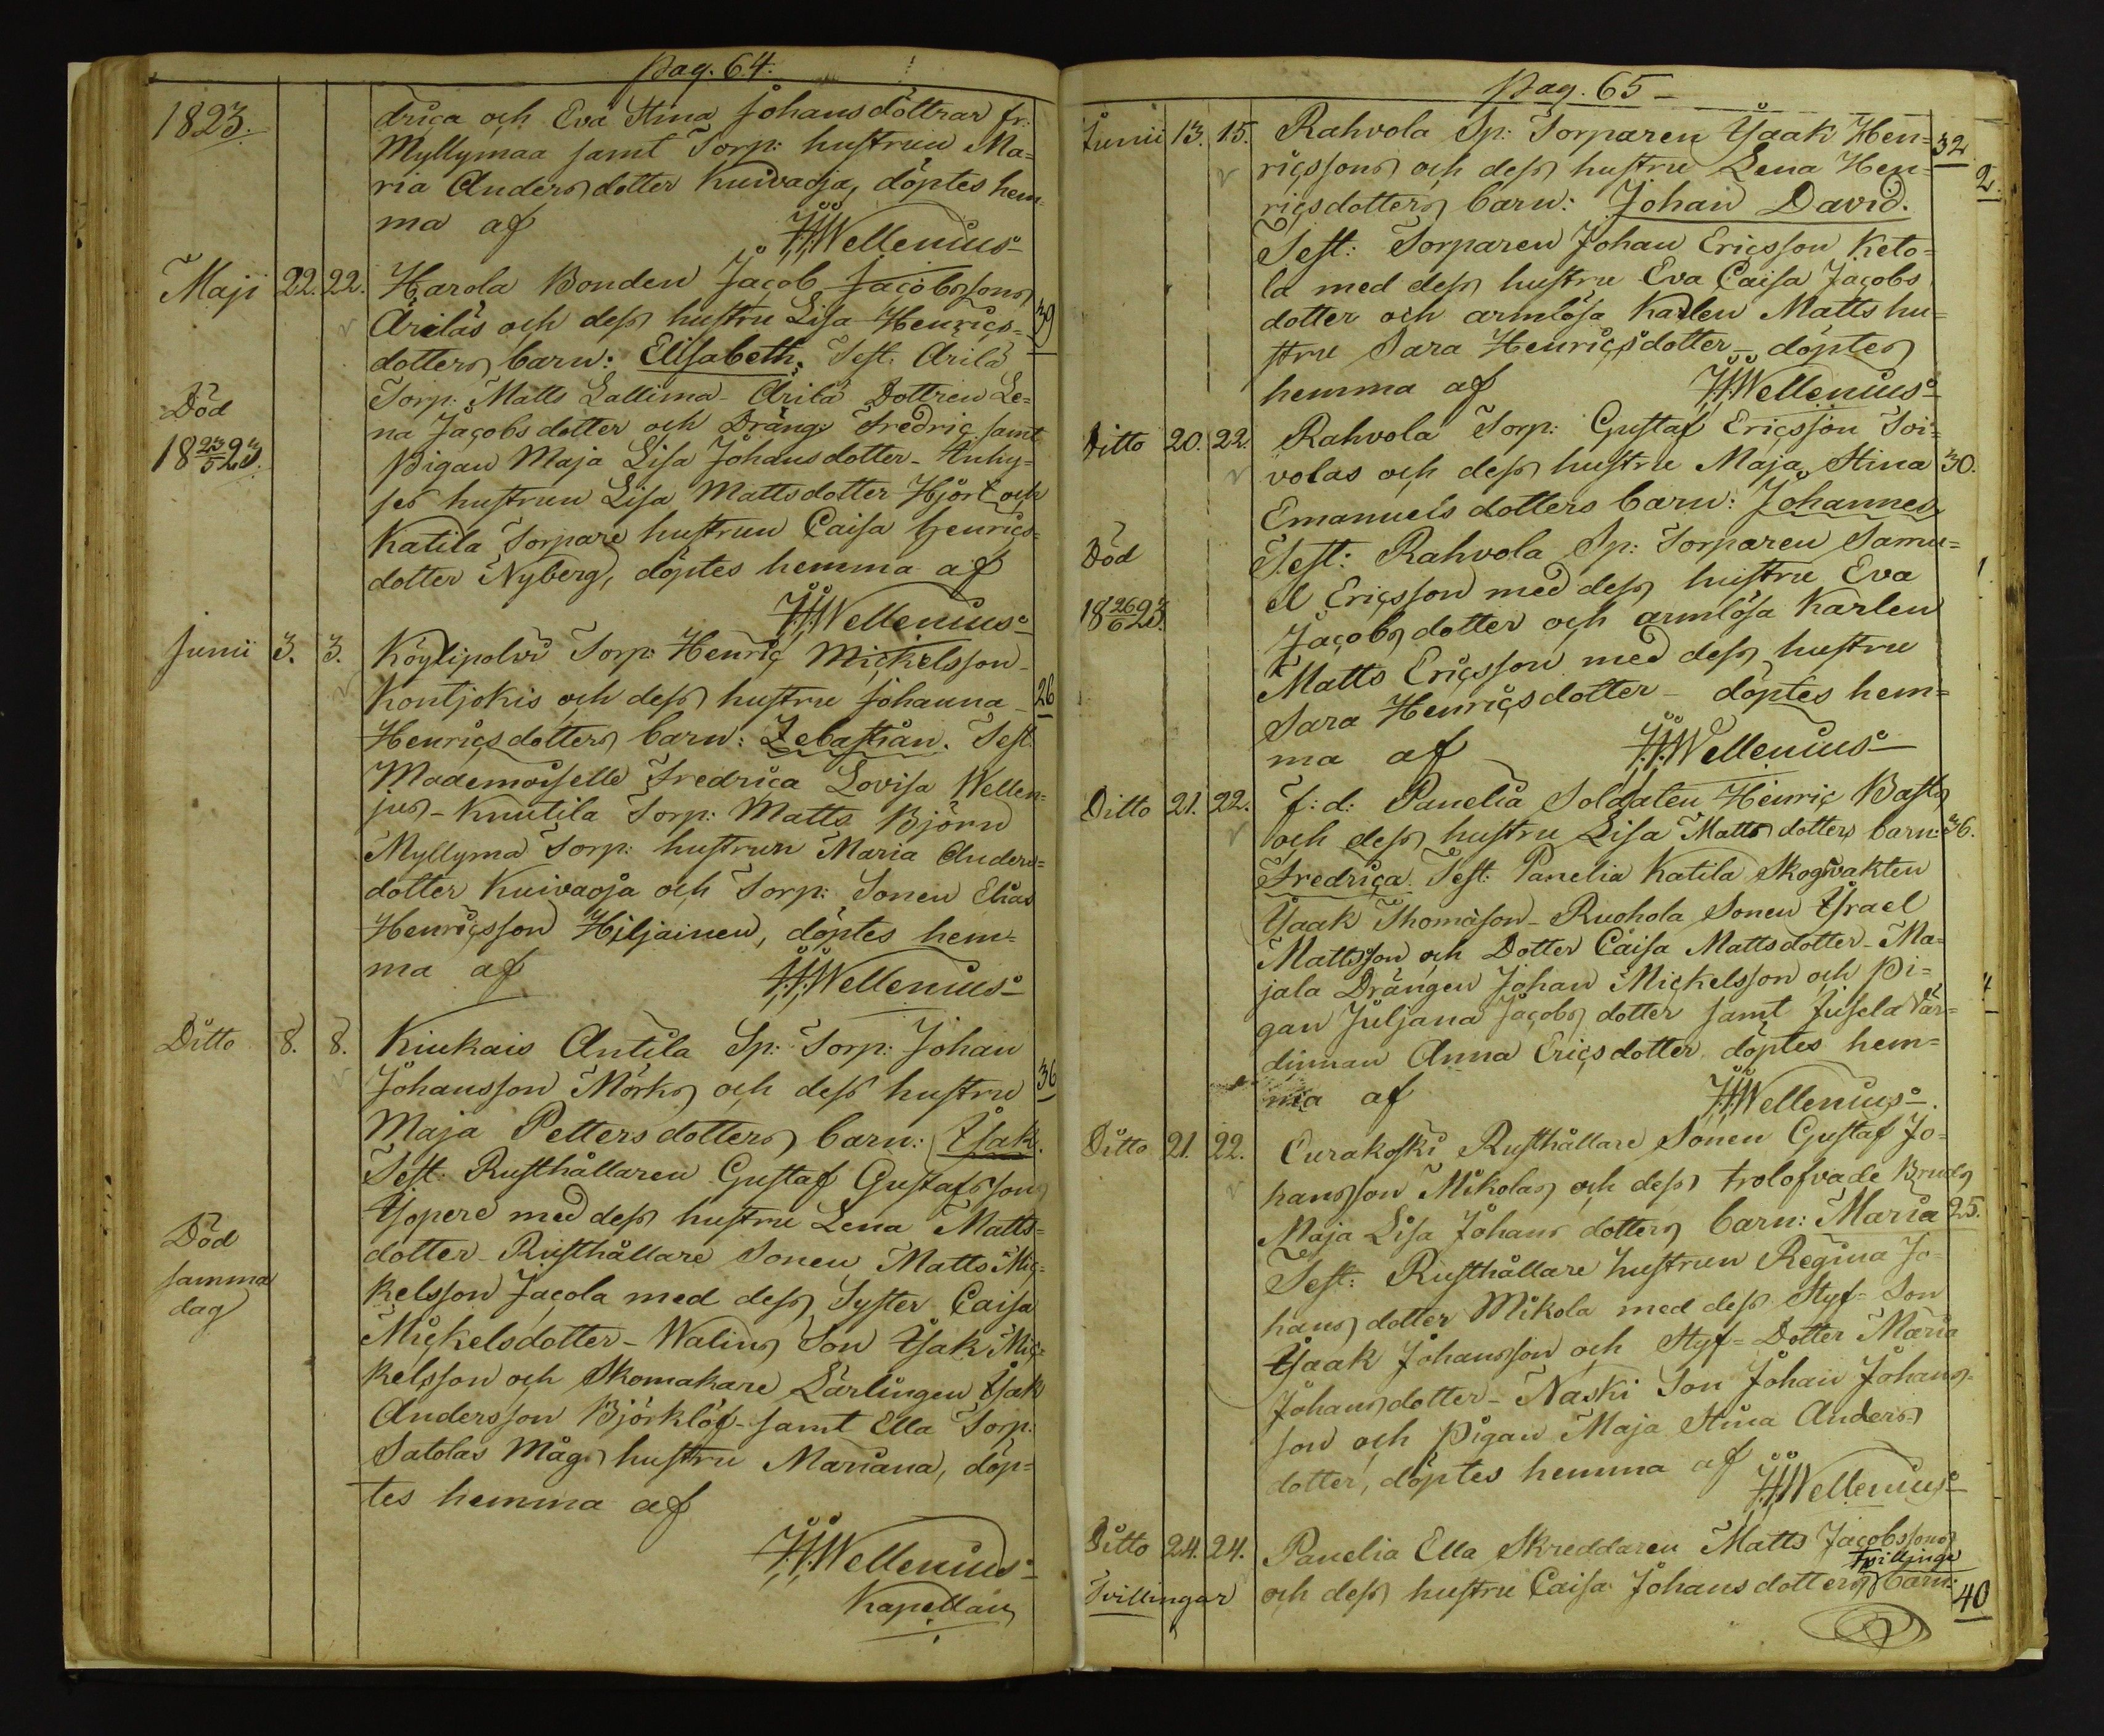 Pag. 64.
1823. driça och Eva Stina Johansdöttrar fr:
Myllymaa samt Torp: hustrun Ma=
ria Andersdotter Kuivaoja, döptes hem=
ma af HWellenius
Maji 22. 22. Harola Bonden Jacob Jacobssons
Ariläs och dess hustru Lisa Henrics= 39
dotters barn: Elisabeth. Test. Arilä
Torp: Matts Lallima - Arilä Dottren Le=
Död
na Jacobsdotter och Dräng: Fredric samt
18 23/5 23.
Pigan Maja Lisa Johansdotter - Anhy=
ses hustrun Lisa Mattsdotter Hjort och
Katila Torpare hustrun Caisa Henrics=
dotter Nyberg, döptes hemma af
HWellenius
Junii 3. 3. Köylipolvi Torp: Henric Mickelsson
Kontjokis och dess hustru Johanna 26
Henricsdotters barn: Zebastian. Test.
Mademoiselle Fredrica Lovisa Wellen=
jus - Knutila Torp: Matts Björn
Myllyma Torp: hustrun Maria Anders=
dotter Kuivaoja och Torp: Sonen Elias
Henricsson Hiljainen, döptes hem=
ma af HWellenius
Ditto 8. 8. Kiukais Antila Sp: Torp: Johan
Johansson Mörks och dess hustru 36
Maja Pettersdotters barn: Isak.
Test. Rusthållaren Gustaf Gustafsson
Yopere med dess hustru Lena Matts=
dotter - Rusthållare Sonen Matts Mic=
Död
samma
dag
kelsson Jacola med dess Syster Caisa
Mickelsdotter - Walins Son Isak Mic=
kelsson och Skomakare Lärlingen Isak
Andersson Björklöf - samt Ella Torp:
Satolas Mågs hustru Mariana, döp=
tes hemma af
HWellenius
Kapellan
Pag. 65
Junii 13. 15. Rahvola Sp: Torparen Isaak Hen= 32
ricssons och dess hustru Lena Hen= 2.
ricsdotters barn: Johan David.
Test: Torparen Johan Ericsson Keto=
la med dess hustru Eva Caisa Jacobs
dotter och armlösa Karlen Matts hu=
stru Sara Henricsdotter - döptes
hemma af HWellenius
Ditto 20. 22. Rahvola Torp: Gustaf Ericsson Toi=
volas och dess hustru Maja Stina 30.
Emanuelsdotters barn: Johannes
Död
Test: Rahvola Sp: Torparen Samu=
el Ericsson med dess hustru Eva
18 26/6 23.
Jacobsdotter och armlösa Karlen
Matts Ericsson med dess hustru
Sara Henricsdotter - döptes hem=
ma af HWellenius
Ditto 21. 22. f: d: Panelia Soldaten Henric Basts
och dess hustru Lisa Mattsdotters barn: 36.
Fredrica. Test: Panelia Katila Skogvakten
Isaak Thomasson - Ruohola Sonen Israel
Mattsson och Dotter Caisa Mattsdotter - Ma=
jala Drängen Johan Mickelsson och Pi=
gan Juljana Jacobsdotter samt Jusela Vär=
dinnan Anna Ericsdotter döptes hem=
ma af HWellenius
Ditto 21. 22. Eurakoski Rusthållare Sonen Gustaf Jo=
hansson Mikolas och dess trolofvade Bruds
Maja Lisa Johansdotters barn: Maria 25.
Test: Rusthållare hustrun Regina Jo=
hansdotter Mikola med dess Styf=Son
Isaak Johansson och Styf=Dotter Maria
Johansdotter - Naski Son Johan Johans=
son och Pigan Maja Stina Anders=
dotter, döptes hemma af HWellenius
Ditto 24. 24. Panelia Ella Skreddaren Matts Jacobssons
Tvillinge
Tvillingar och dess hustru Caisa Johansdotters barn: 40